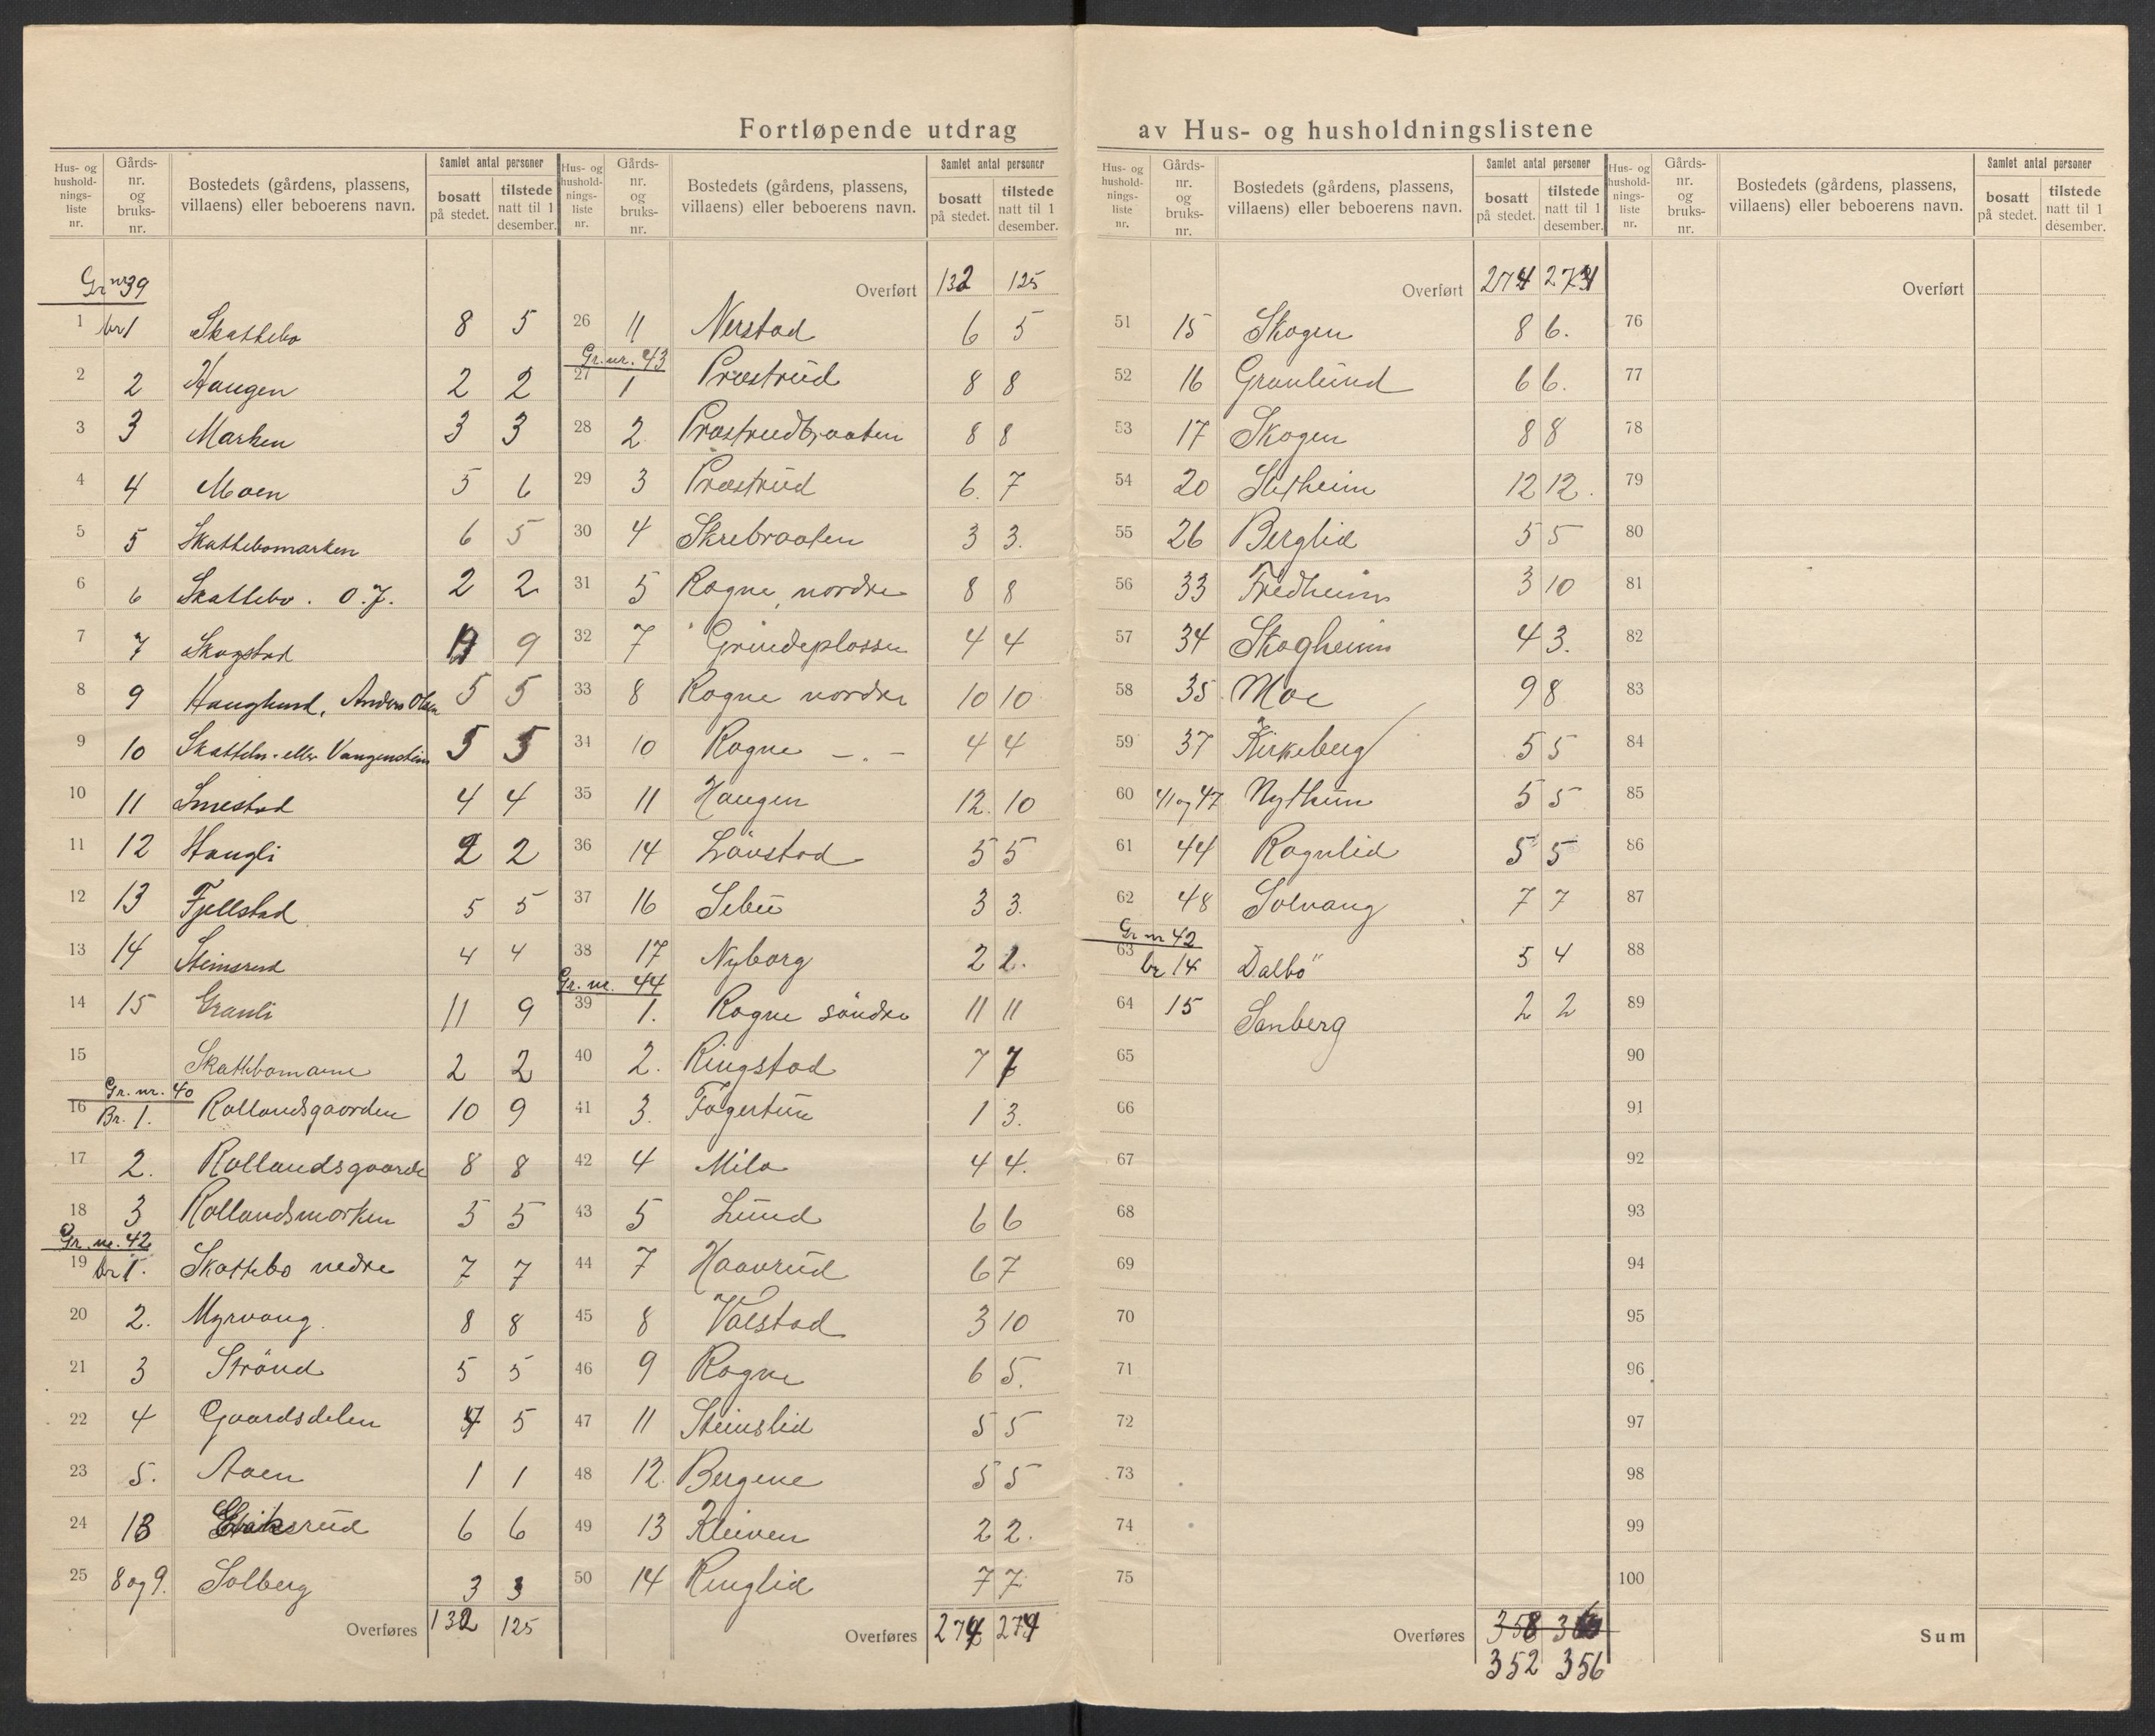 Fortløpende utdrag av Hus- og husholdningslistene
Hus- og husholdnings-liste nr. Gårds-nr. og bruks-nr. Bostedets (gårdens, plassens, villaens) eller beboerens navn. Samlet antal personer bosatt på stedet. tilstede natt til 1 desember.
Gr nr 39
1 br 1 Skattebo 8 5
2 2 Haugen 2 2
3 3 Marken 3 3
4 4 Moen 5 6
5 5 Skattebomarken 6 5
6 6 Skattebo. O.J. 2 2
7 7 Skogstad 9
8 9 Hauglund, Anders Olsen 5 5
9 10 Skattebo eller Vangenstein 5 5
10 11 Smestad 4 4
11 12 Haugli 2 2
12 13 Fjellstad 5 5
13 14 Steinsrud 4 4
14 15 Granli 11 9
15 Skattebomoen 2 2
Gr. nr. 40
16 Br. 1. Rollandsgaarden 10 9
17 2. Rollandsgaarde 8 8
18 3 Rollandsmarken 5 5
Gr. nr. 42
19 br 1. Skattebo nedre 7 7
20 2. Myrvang. 8 8
21 3 Strönd 5 5
22 4 Gaardsdelen 4 5
23 5. Aaen 1 1
24 13 Eriksrud 6 6
25 8 og 9. Solberg 3 3
Overføres 132 125
Hus- og husholdnings-liste nr. Gårds-nr. og bruks-nr. Bostedets (gårdens, plassens, villaens) eller beboerens navn. Samlet antal personer bosatt på stedet. tilstede natt til 1 desember.
Overført 132 125
26 11 Nerstad 6 5
Gr. nr. 43
27 1 Præstrud 8 8
28 2 Præstrudbraaten 8 8
29 3 Præstrud 6. 7
30 4 Skrebraaten 3 3.
31 5 Rogne, nordre 8 8
32 7 Grindeplassen 4 4
33 8 Rogne nordre 10 10
34 10 Rogne - . - 4 4
35 11 Haugen 12. 10
36 14 Lövstad 5 5
37 16 Sebu 3 3.
38 17 Nyborg 2 2.
Gr. nr. 44
39 1. Rogne söndre 11 11
40 2. Ringstad 7 7
41 3. Fagertun 1 3.
42 4 Mila 4 4.
43 5 Lund 6 6
44 7 Haavrud 6 7
45 8 Valstad 3 10
46 9 Rogne 6 5.
47 11 Steinslid 5 5
48 12. Bergene 5 5
49 13 Kleiven 2 2.
50 14 Ringlid 7 7
Overføres 274 274
Hus- og husholdnings-liste nr. Gårds-nr. og bruks-nr. Bostedets (gårdens, plassens, villaens) eller beboerens navn. Samlet antal personer bosatt på stedet. tilstede natt til 1 desember.
Overført 274 274
51 15 Skogen 8 6.
52 16 Granlund 6 6.
53 17 Skogen 8 8
54 20 Sletheim 12 12.
55 26 Berglid 5 5
56 33 Fredheim 3 10
57 34 Skogheim 4 3.
58 35 Moe 9 8
59 37 Kirkeberg 5 5
60 41 og 47 Nythun 5 5
61 44 Rognlid 5 5
62 48 Solvang 7 7
Gr nr 42
63 br 14 Dalbö 5 4
64 15 Sanberg 2 2
65
66
67
68
69
70
71
72
73
74
75
Overføres 358
352 356
Hus- og husholdnings-liste nr. Gårds-nr. og bruks-nr. Bostedets (gårdens, plassens, villaens) eller beboerens navn. Samlet antal personer bosatt på stedet. tilstede natt til 1 desember.
Overført
76
77
78
79
80
81
82
83
84
85
86
87
88
89
90
91
92
93
94
95
96
97
98
99
100
Sum